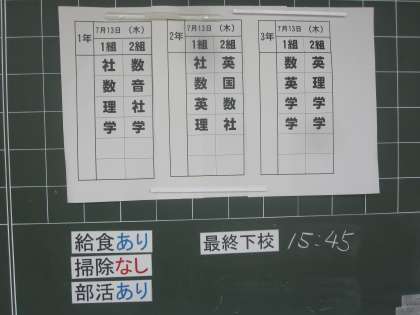 1年 7月13日 (木)
1組 2組
社 数
数 音
理 社
学 学
2年 7月13日 (木)
1組 2組
社 英
数 国
英 数
理 社
3年 7月13日 (木)
1組 2組
数 英
英 理
学 学
学 学
給食あり
掃除なし
部活あり
最終下校 15:45